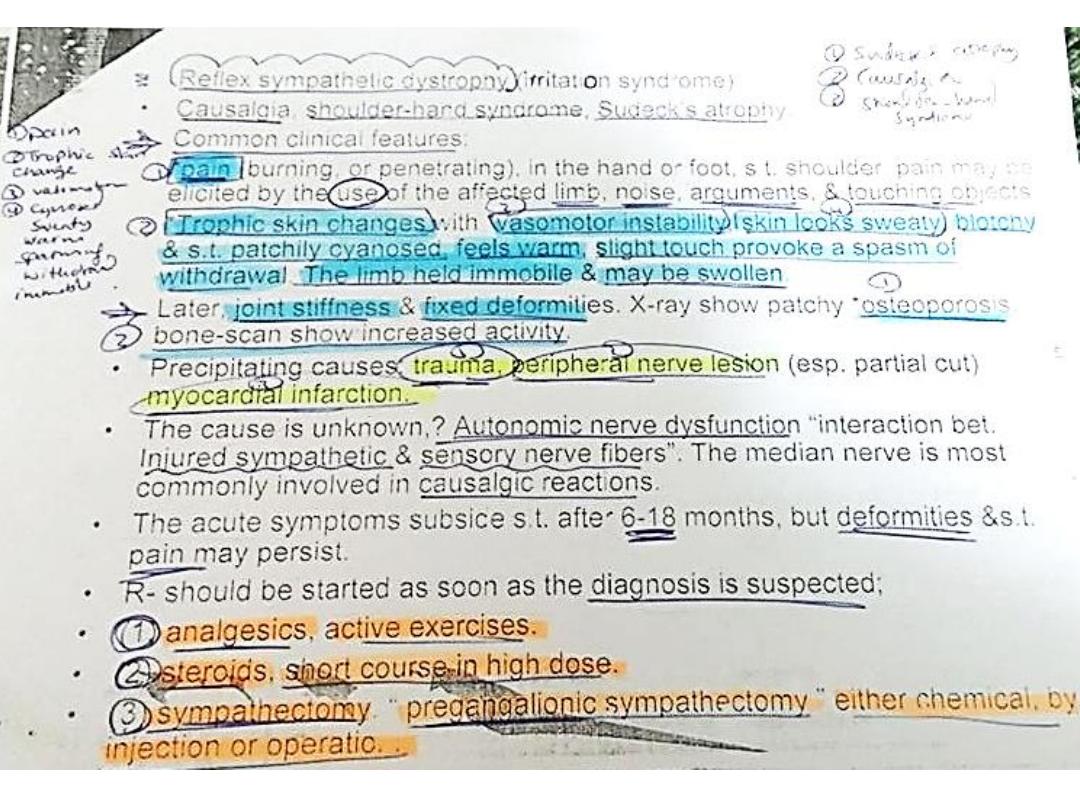 Reflex sympathetic dystrophy (irritation syndrome)
① Sudeck's atrophy
②
③ Shoulder-hand
syndrome
• Causalgia, shoulder-hand syndrome, Sudeck's atrophy.
① pain
② Trophic
change
③ vasomotor
④
Sweaty
warm
withdrawal
immobile
Common clinical features:
① pain (burning, or penetrating), in the hand or foot, s.t. shoulder pain may be
elicited by the use of the affected limb, noise, arguments, & touching objects
② Trophic skin changes with vasomotor instability (skin looks sweaty) blotchy
& s.t. patchily cyanosed, feels warm, slight touch provoke a spasm of
withdrawal. The limb held immobile & may be swollen.
Later, joint stiffness & fixed deformities. X-ray show patchy "osteoporosis.
①
② bone-scan show increased activity.
• Precipitating causes: trauma, peripheral nerve lesion (esp. partial cut)
myocardial infarction.
• The cause is unknown,? Autonomic nerve dysfunction "interaction bet.
Injured sympathetic & sensory nerve fibers". The median nerve is most
commonly involved in causalgic reactions.
• The acute symptoms subsice s.t. after 6-18 months, but deformities &s.t.
pain may persist.
• R- should be started as soon as the diagnosis is suspected;
• ① analgesics, active exercises.
• ② steroids, short course in high dose.
• ③ sympathectomy. "pregangalionic sympathectomy " either chemical, by
injection or operatic. .